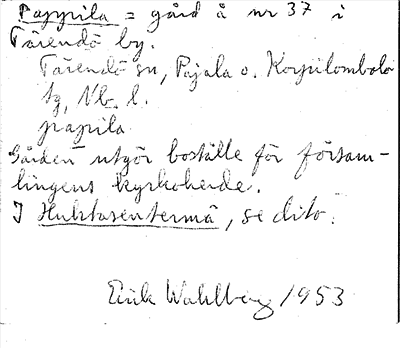 Pappila = gård å nr 37 i
Tärendö by.
Tärendö sn, Pajala o. Korpilombolo
tg, Nb. l.
pap̀ila
Gården utgör boställe för försam-
lingens kyrkoherde.
I Huhtasentermä, se dito.
Erik Wahlberg 1953